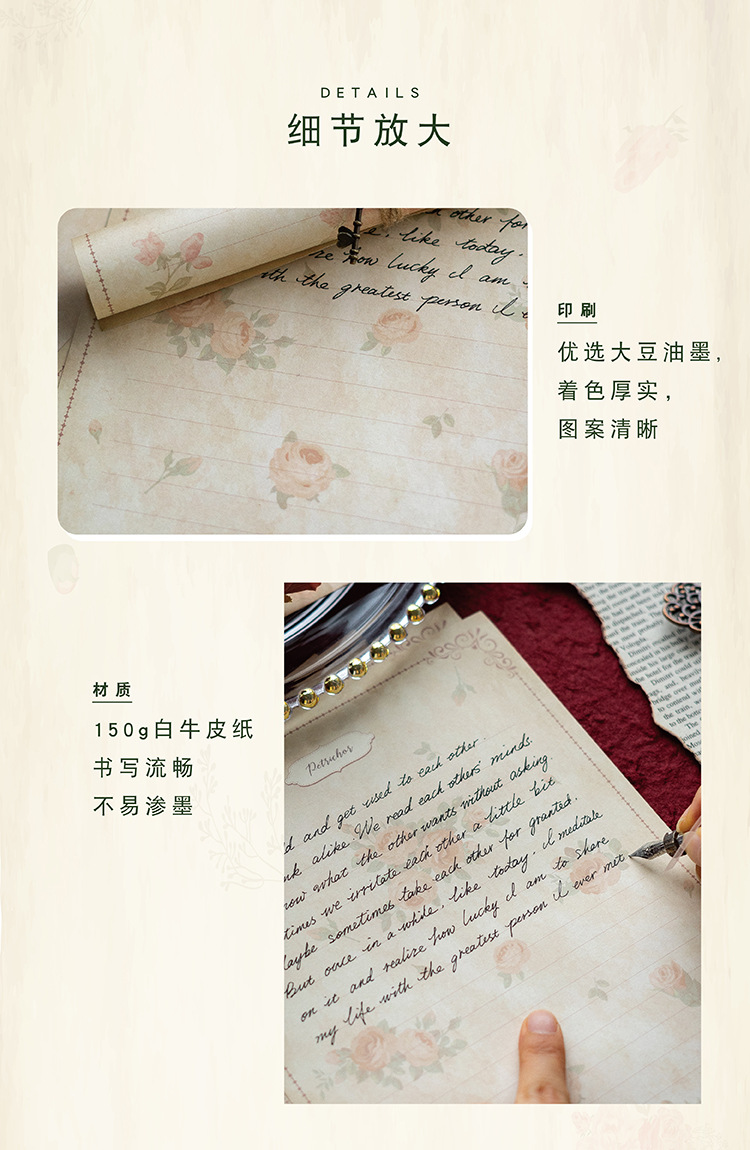 DETAILS
细节放大
other for
e, like today.
ze how lucky I am
th the greatest person I
印刷
优选大豆油墨,
着色厚实,
图案清晰
材质
150g白牛皮纸
书写流畅
不易渗墨
Petruhor
d and get used to each other.
nk alike. We read each others' minds.
now what the other wants without asking.
times we irritate each other a little bit
Maybe sometimes take each other for granted.
But once in a while, like today, I meditate
on it and realize how lucky I am to share
my life with the greatest person I ever met